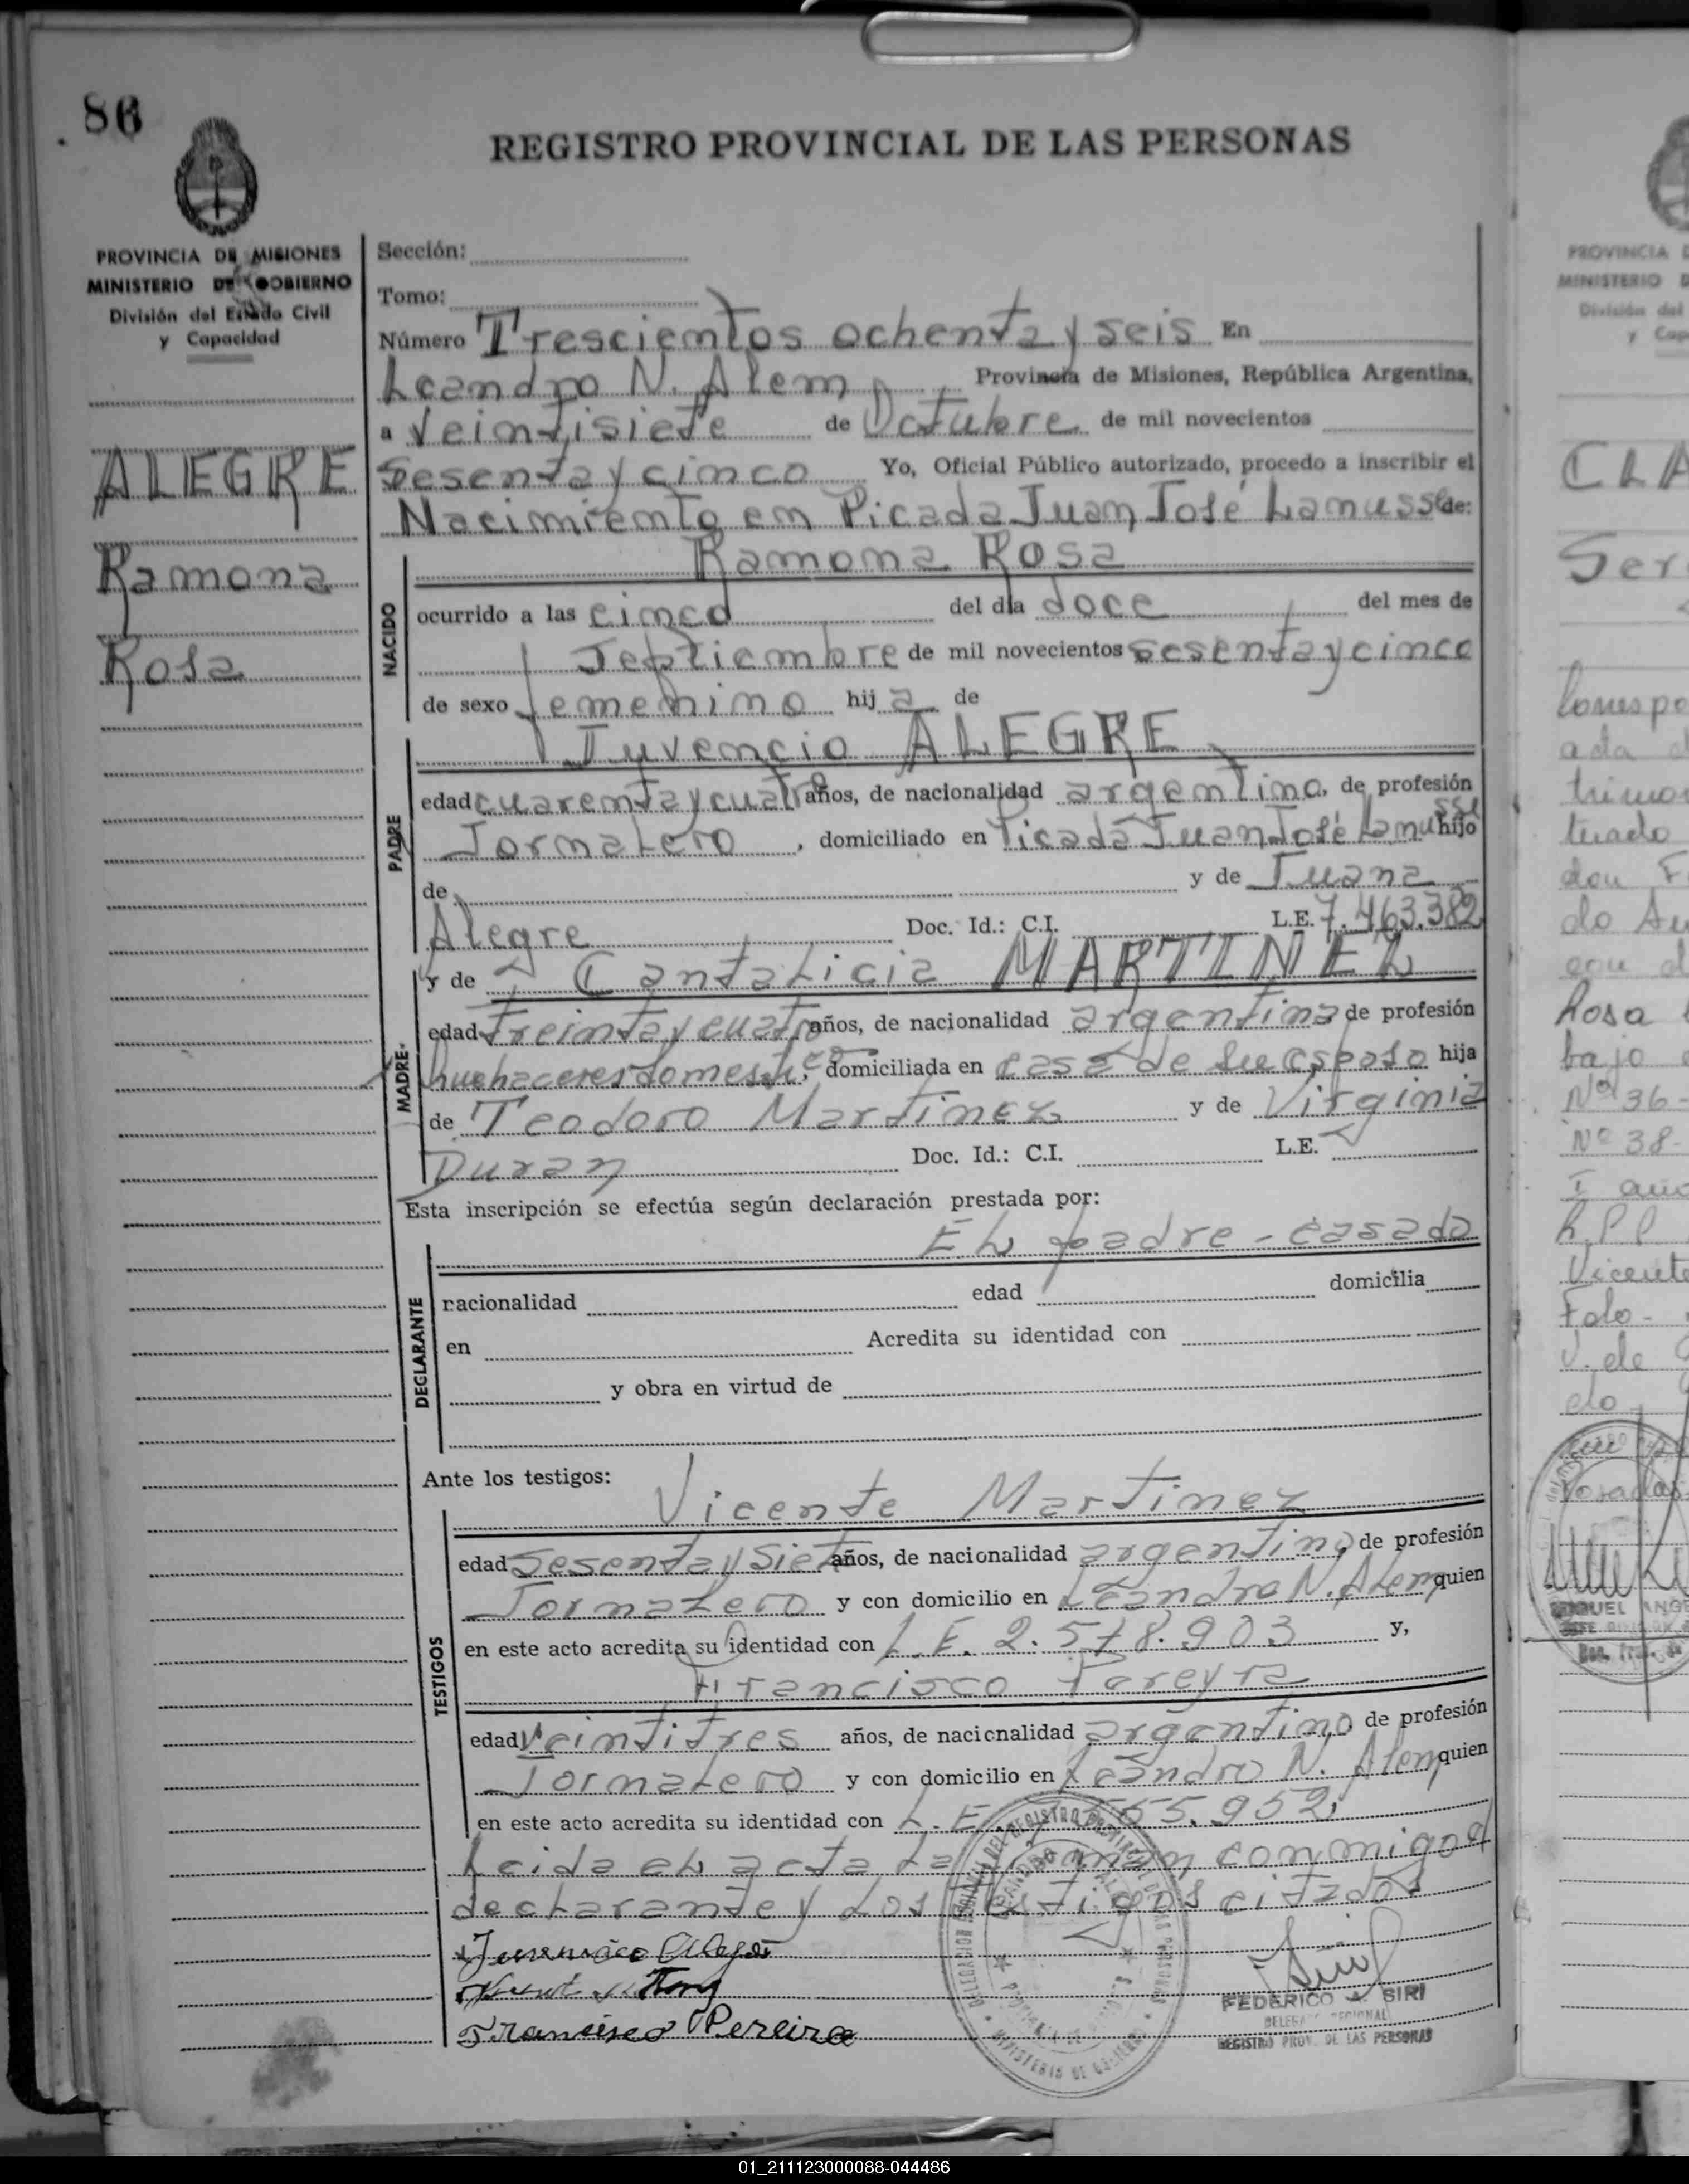 86
REGISTRO PROVINCIAL DE LAS PERSONAS
PROVINCIA DE MISIONES
MINISTERIO DE GOBIERNO
División del Estado Civil
y Capacidad
ALEGRE
Ramona
Rosa
Sección:
Tomo:
Número Trescientos ochenta y seis En
Leandro N. Alem, Provincia de Misiones, República Argentina,
a Veintisiete de Octubre de mil novecientos
Sesenta y cinco Yo, Oficial Público autorizado, procedo a inscribir el
Nacimiento en Picada Juan José Lanusse de:
NACIDO
Ramona Rosa
ocurrido a las cinco del día doce del mes de
Septiembre de mil novecientos sesenta y cinco
de sexo femenino hija de
PADRE
Juvencio ALEGRE
edad cuarenta y cuatro años, de nacionalidad argentino, de profesión
Jornalero, domiciliado en Picada Juan José Lanusse hijo
de y de Juana
Alegre Doc. Id.: C.I. L.E. 7.463.382
MADRE
y de Cantalicia MARTINEZ
edad treinta y cuatro años, de nacionalidad argentina de profesión
domiciliada en casa de su esposo hija
de Teodoro Martinez y de Virginia
Duran Doc. Id.: C.I. L.E.
Esta inscripción se efectúa según declaración prestada por:
DECLARANTE
El padre - casado
nacionalidad edad domicilia
en Acredita su identidad con
y obra en virtud de
Ante los testigos:
TESTIGOS
Vicente Martinez
edad Sesenta y siete años, de nacionalidad argentino, de profesión
Jornalero y con domicilio en Leandro N. Alem quien
en este acto acredita su identidad con L.E. 2.578.903 y,
Francisco Pereyra
edad Veintitres años, de nacionalidad argentino, de profesión
Jornalero y con domicilio en Leandro N. Alem quien
en este acto acredita su identidad con L.E. 55.952,
Leida el acta la firman conmigo el
declarante y los testigos citados
Juvencio Alegre
Francisco Pereira
FEDERICO A. SIRI
DELEGADO REGIONAL
REGISTRO PROV. DE LAS PERSONAS
PROVINCIA D
MINISTERIO D
División del
y Cap
CLA
Ser
Rosa
bajo
Nº 36-
Nº 38-
Vicente
Folo-
01_211123000088-044486